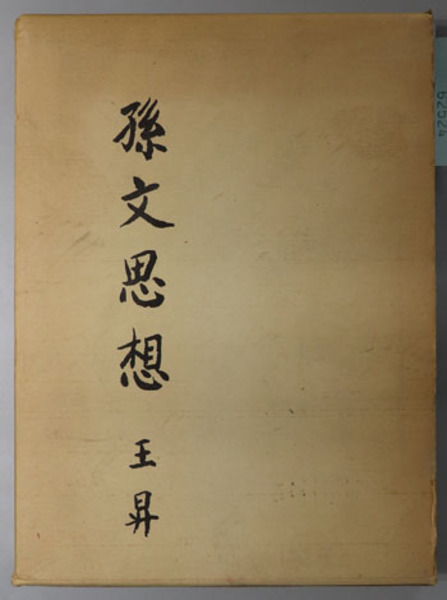 孫文思想
王昇
62524